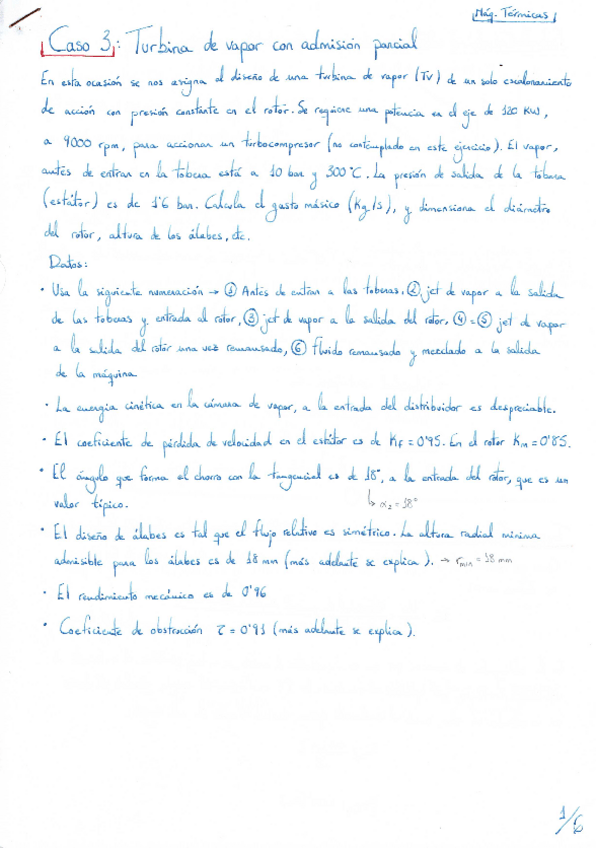 Máq. Térmicas
Caso 3: Turbina de vapor con admisión parcial
En esta ocasión se nos asigna el diseño de una turbina de vapor (TV) de un solo escalonamiento
de acción con presión constante en el rotor. Se requiere una potencia en el eje de 120 KW,
a 9000 rpm, para accionar un turbocompresor (no contemplado en este ejercicio). El vapor,
antes de entrar en la tobera está a 10 bar y 300°C. La presión de salida de la tobera
(estátor) es de 1'6 bar. Calcula el gasto másico (Kg/s), y dimensiona el diámetro
del rotor, altura de los álabes, etc.
Datos:
• Usa la siguiente numeración → ① Antes de entrar a las toberas, ② jet de vapor a la salida
de las toberas y entrada al rotor, ③ jet de vapor a la salida del rotor, ④=⑤ jet de vapor
a la salida del rotor una vez remansado, ⑥ Fluido remansado y mezclado a la salida
de la máquina
• La energía cinética en la cámara de vapor, a la entrada del distribuidor es despreciable.
• El coeficiente de pérdida de velocidad en el estátor es de KF = 0'95. En el rotor Km = 0'85.
• El ángulo que forma el chorro con la tangencial es de 18°, a la entrada del rotor, que es un
valor típico.
↳ α2 = 18°
• El diseño de álabes es tal que el flujo relativo es simétrico. La altura radial mínima
admisible para los álabes es de 18 mm (más adelante se explica). → rmin = 18 mm
• El rendimiento mecánico es de 0'96
• Coeficiente de obstrucción τ = 0'91 (más adelante se explica).
1/6